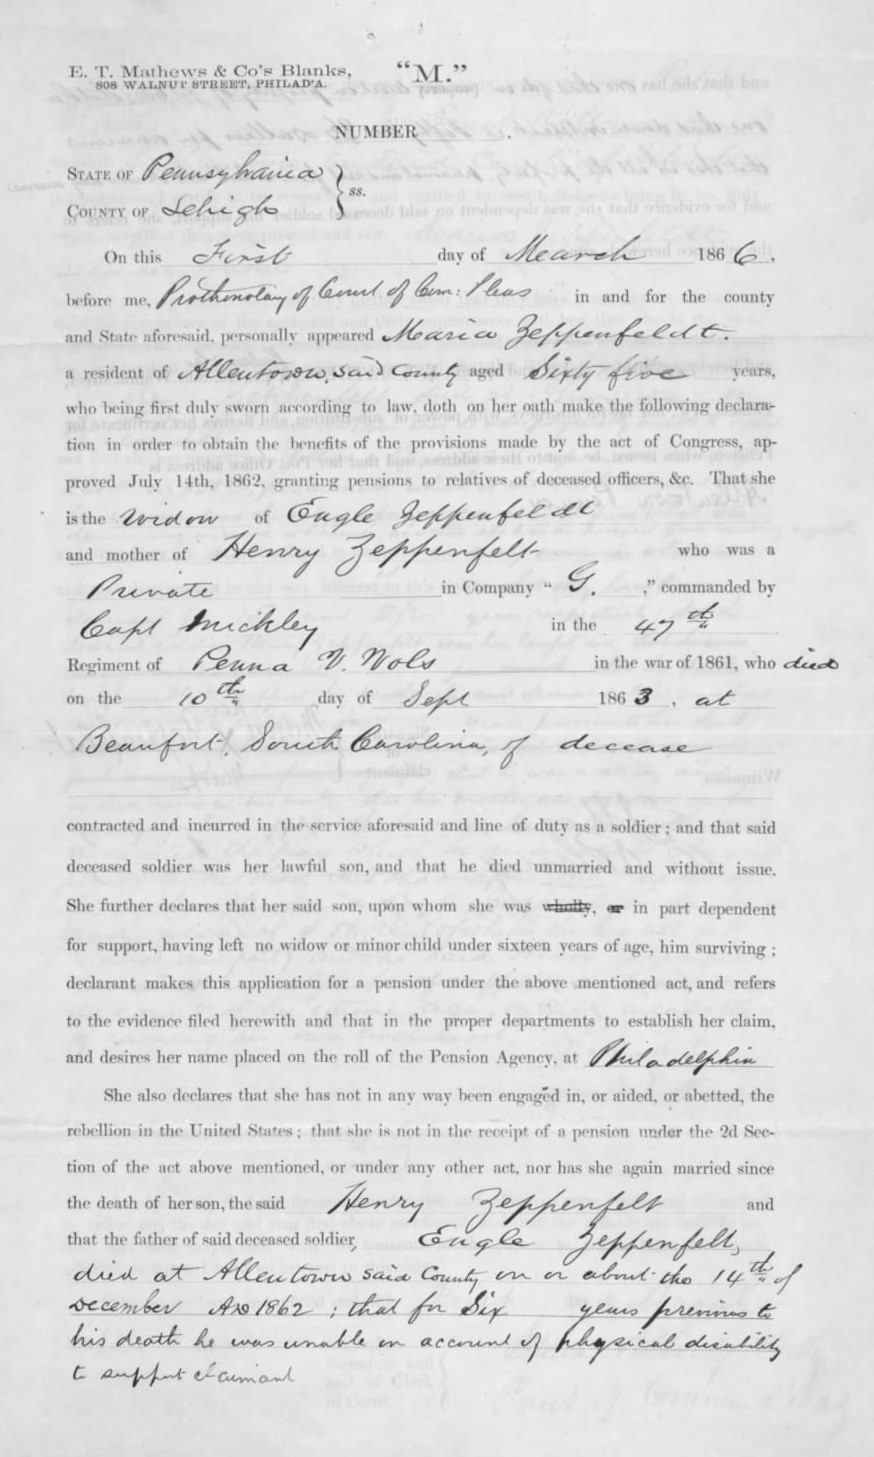 E. T. Mathews & Co's Blanks,
"M."
808 WALNUT STREET, PHILAD'A.
NUMBER .
STATE OF Pennsylvania
COUNTY OF Lehigh } ss.
On this First day of Mearch 1866,
before me, Prothonotary of Court of Com: Pleas in and for the county
and State aforesaid, personally appeared Maria Zeppenfeldt.
a resident of Allentown, said County aged Sixty five years,
who being first duly sworn according to law, doth on her oath make the following declara-
tion in order to obtain the benefits of the provisions made by the act of Congress, ap-
proved July 14th, 1862, granting pensions to relatives of deceased officers, &c. That she
is the widow of Engle Zeppenfeldt
and mother of Henry Zeppenfelt who was a
Private in Company "G.," commanded by
Capt Mickley in the 47th
Regiment of Penna V. Vols in the war of 1861, who died
on the 10th day of Sept 1863, at
Beaufort, South Carolina, of decease
contracted and incurred in the service aforesaid and line of duty as a soldier; and that said
deceased soldier was her lawful son, and that he died unmarried and without issue.
She further declares that her said son, upon whom she was wholly, or in part dependent
for support, having left no widow or minor child under sixteen years of age, him surviving;
declarant makes this application for a pension under the above mentioned act, and refers
to the evidence filed herewith and that in the proper departments to establish her claim,
and desires her name placed on the roll of the Pension Agency, at Philadelphia
She also declares that she has not in any way been engaged in, or aided, or abetted, the
rebellion in the United States; that she is not in the receipt of a pension under the 2d Sec-
tion of the act above mentioned, or under any other act, nor has she again married since
the death of her son, the said Henry Zeppenfelt and
that the father of said deceased soldier, Engle Zeppenfelt,
died at Allentown said County on or about the 14th of
December AD 1862; that for Six years previous to
his death he was unable on account of physical disability
to support claimant